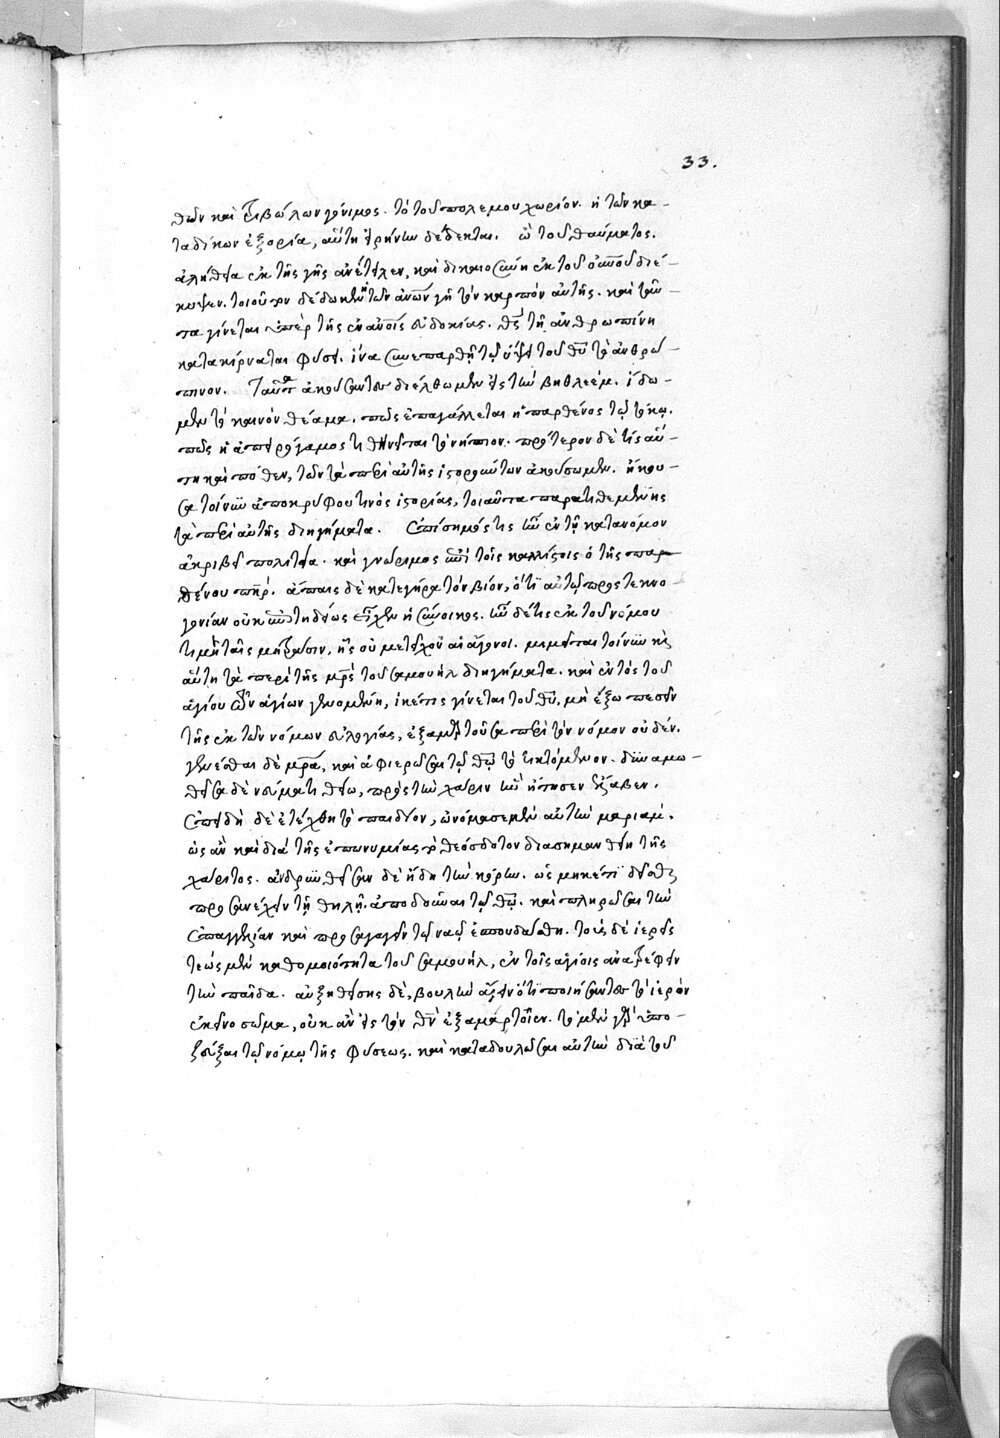 33.
θῶν καὶ τριβόλων γόνιμος. τὸ τοῦ πολέμου χωρίον. ἡ τῶν κα-
ταδίκων ἐξορία, αὕτη εἰρήνην δέδεκται. ὢ τοῦ θαύματος.
ἀλήθεια ἐκ τῆς γῆς ἀνέτειλεν, καὶ δικαιοσύνη ἐκ τοῦ οὐνοῦ διέ-
κυψεν. τοιοῦτον δέδωκεν ἡ τῶν ἀνων γῆ τὸν καρπὸν αὐτῆς. καὶ ταῦ-
τα γίνεται ὑπὲρ τῆς ἐν ἀνοις εὐδοκίας. θς τῇ ἀνθρωπίνῃ
κατακίρναται φύσει. ἵνα συνεπαρθῇ τῷ ὕψει τοῦ θυ τὸ ἀνθρώ-
πινον. Ταῦτα ἀκούσαντες διέλθωμεν εἰς τὴν βηθλεέμ. ἴδω-
μεν τὸ καινὸν θέαμα. πῶς ἐπαγάλλεται ἡ παρθένος τῷ τόκῳ.
πῶς ἡ ἀπειρόγαμος τιθηνεῖται τὸ νήπιον. πρότερον δὲ τίς αὕ-
τη καὶ πόθεν, τῶν τὰ περὶ αὐτῆς ἱστορούντων ἀκούσωμεν. ἤκου-
σα τοίνυν ἀποκρύφου τινὸς ἱστορίας, τοιαῦτα παρατιθεμένης
τὰ περὶ αὐτῆς διηγήματα. Ἐπίσημός τις ἦν ἐν τῇ κατὰ νόμον
ἀκριβεῖ πολιτείᾳ. καὶ γνώριμος ἐπὶ τοῖς καλλίστοις ὁ τῆς παρ
θένου πηρ. ἄπαις δὲ κατεγήρα τὸν βίον, ὅτι αὐτῷ πρὸς τεκνο-
γονίαν οὐκ ἐπιτηδείως εἶχεν ἡ σύνοικος. ἦν δέ τις ἐκ τοῦ νόμου
τιμὴ ταῖς μητράσιν, ἧς οὐ μετεῖχον αἱ ἄγονοι. μιμεῖται τοίνυν καὶ
αὕτη τὰ περὶ τῆς μρς τοῦ σαμουὴλ διηγήματα. καὶ ἐντὸς τοῦ
ἁγίου τῶν ἁγίων γενομένη, ἱκέτις γίνεται τοῦ θυ, μὴ ἔξω πεσεῖν
τῆς ἐκ τῶν νόμων εὐλογίας, ἐξαμαρτοῦσα περὶ τὸν νόμον οὐδέν.
γενέσθαι δὲ μρα, καὶ ἀφιερῶσαι τῷ θῷ τὸ τικτόμενον. δυναμω-
θεῖσα δὲ νεύματι θείῳ, πρὸς τὴν χάριν ἣν ᾔτησεν ἔλαβεν.
Ἐπειδὴ δὲ ἐτέχθη τὸ παιδίον, ὠνόμασε μὲν αὐτὴν μαριάμ.
ὡς ἂν καὶ διὰ τῆς ἐπωνυμίας τὸ θεόσδοτον διασημανθείη τῆς
χάριτος. ἁδρυνθεῖσαν δὲ ἤδη τὴν κόρην. ὡς μηκέτι δεῖσθαι
προσανέχειν τῇ θηλῇ. ἀποδοῦναι τῷ θῷ. καὶ πληρῶσαι τὴν
ἐπαγγελίαν καὶ προσαγαγεῖν τῷ ναῷ ἐσπουδάσθη. τοὺς δὲ ἱερεῖς
τέως μὲν καθ' ὁμοιότητα τοῦ σαμουὴλ, ἐν τοῖς ἁγίοις ἀνατρέφειν
τὴν παῖδα. αὐξηθείσης δὲ, βουλὴν ἄγειν ὅ τι ποιήσαντες τὸ ἱερὸν
ἐκεῖνο σῶμα, οὐκ ἂν εἰς τὸν θν ἐξαμάρτοιεν. τὸ μὲν γὰρ ὑπο-
ζεῦξαι τῷ νόμῳ τῆς φύσεως. καὶ καταδουλῶσαι αὐτὴν διὰ τοῦ